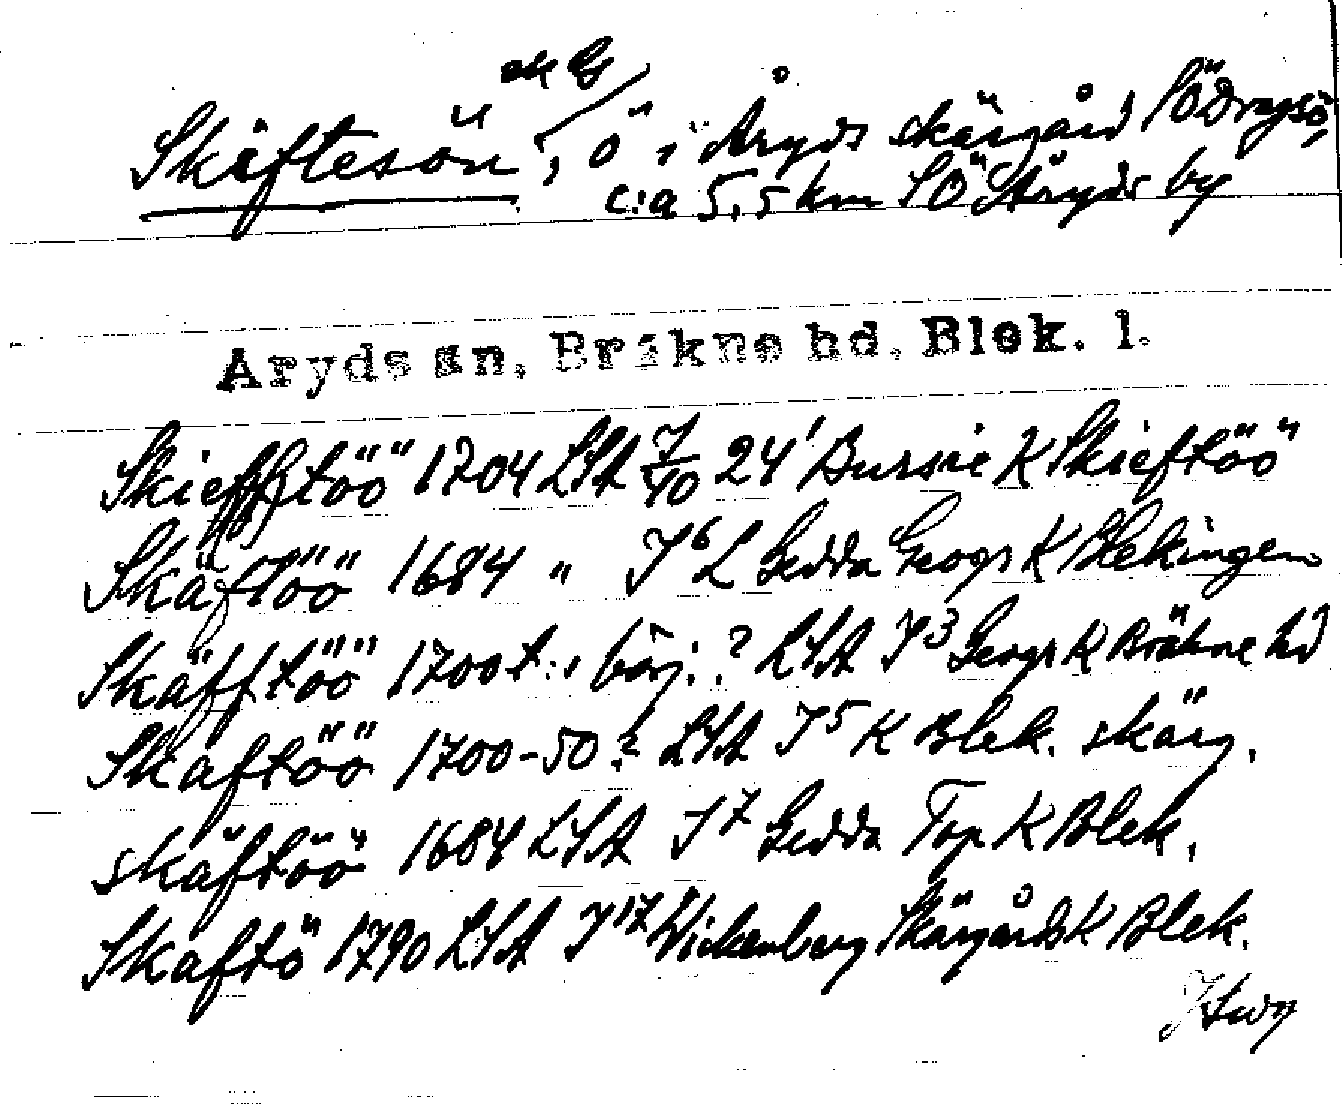 ek G
Skäftesön, ö i Åryds skärgård SÖ Dragsö,
c:a 5,5 km SÖ Åryds by
Åryds sn, Bräkne hd. Blek. l.
Skiefftöö 1704 LSA 7/10 24' Bursie K Skieftöö
Skäftöö 1684 " I 6 L Gedda Geogr K Blekingen
Skäfftöö 1700 t., börj.? LSA I 3 Geogr K Bräkne hd
Skäftöö 1700-50? LSA I 5 K Blek. skärg.
skäftöö 1684 LSA I 7 Gedda Top K Blek.
Skäftö 1790 LSA I 17 Wickenberg Skärgårds K Blek.